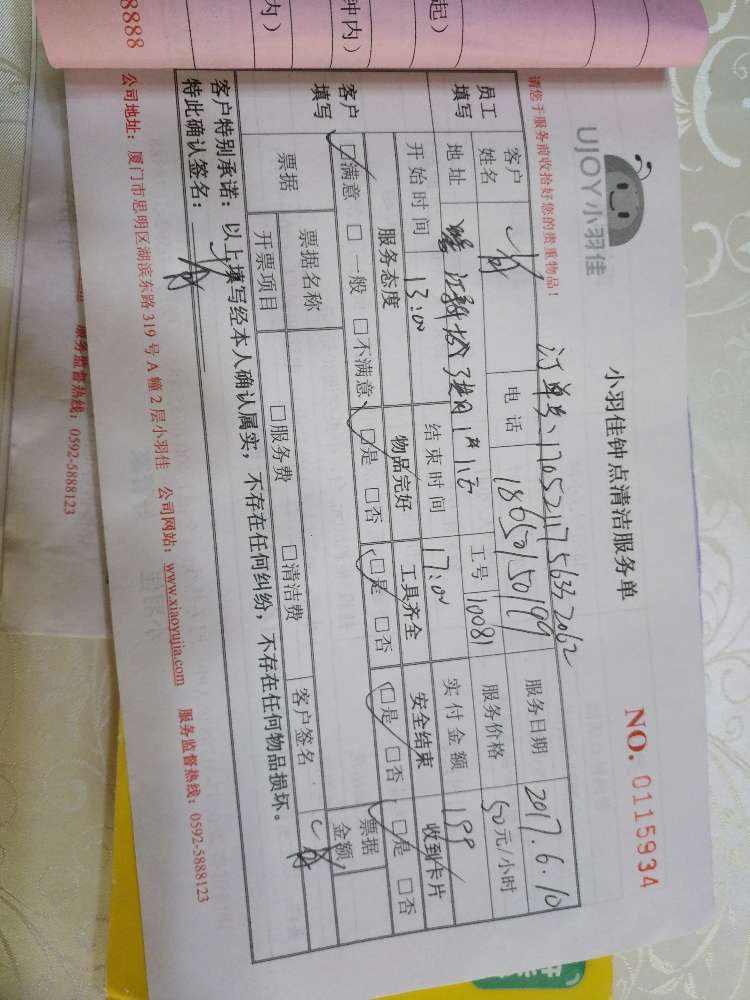 起）
钟内）
内）
8888
UJOY小羽佳
小羽佳钟点清洁服务单
NO. 0115934
请您于服务前收拾好您的贵重物品！
订单号、
员工填写
客户姓名
电话
18650150199
服务日期
2017.6.10
地址
工号
10081
服务价格
50元/小时
开始时间
13:00
结束时间
17:00
实付金额
199
客户填写
服务态度
物品完好
工具齐全
安全结束
收到卡片
□满意 □一般 □不满意
□是 □否
□是 □否
□是 □否
□是 □否
票据
票据名称
票据金额
开票项目
□服务费 □清洁费
客户签名
客户特别承诺：以上填写经本人确认属实，不存在任何纠纷，不存在任何物品损坏。
特此确认签名：
公司地址：厦门市思明区湖滨东路 319 号 A 幢 2 层小羽佳 公司网站：www.xiaoyujia.com 服务监督热线：0592-5888123
服务监督热线：0592-5888123